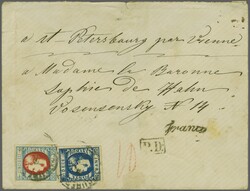 a St Petersbourg par Vienne
a Madame la Baronne
Sophie de Hahn
Vosensensky N 14
franco
P.D.